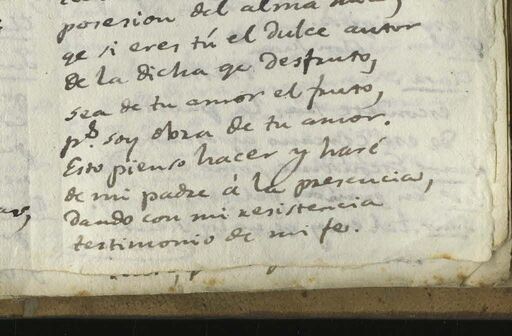 posesion del alma mia,
qe si eres tú el dulce autor
de la dicha qe desfruto,
sea de tu amor el fruto,
ps. soy obra de tu amor.
Esto pienso hacer y haré
de mi padre á la presencia,
dando con mi resistencia
testimonio de mi fe.